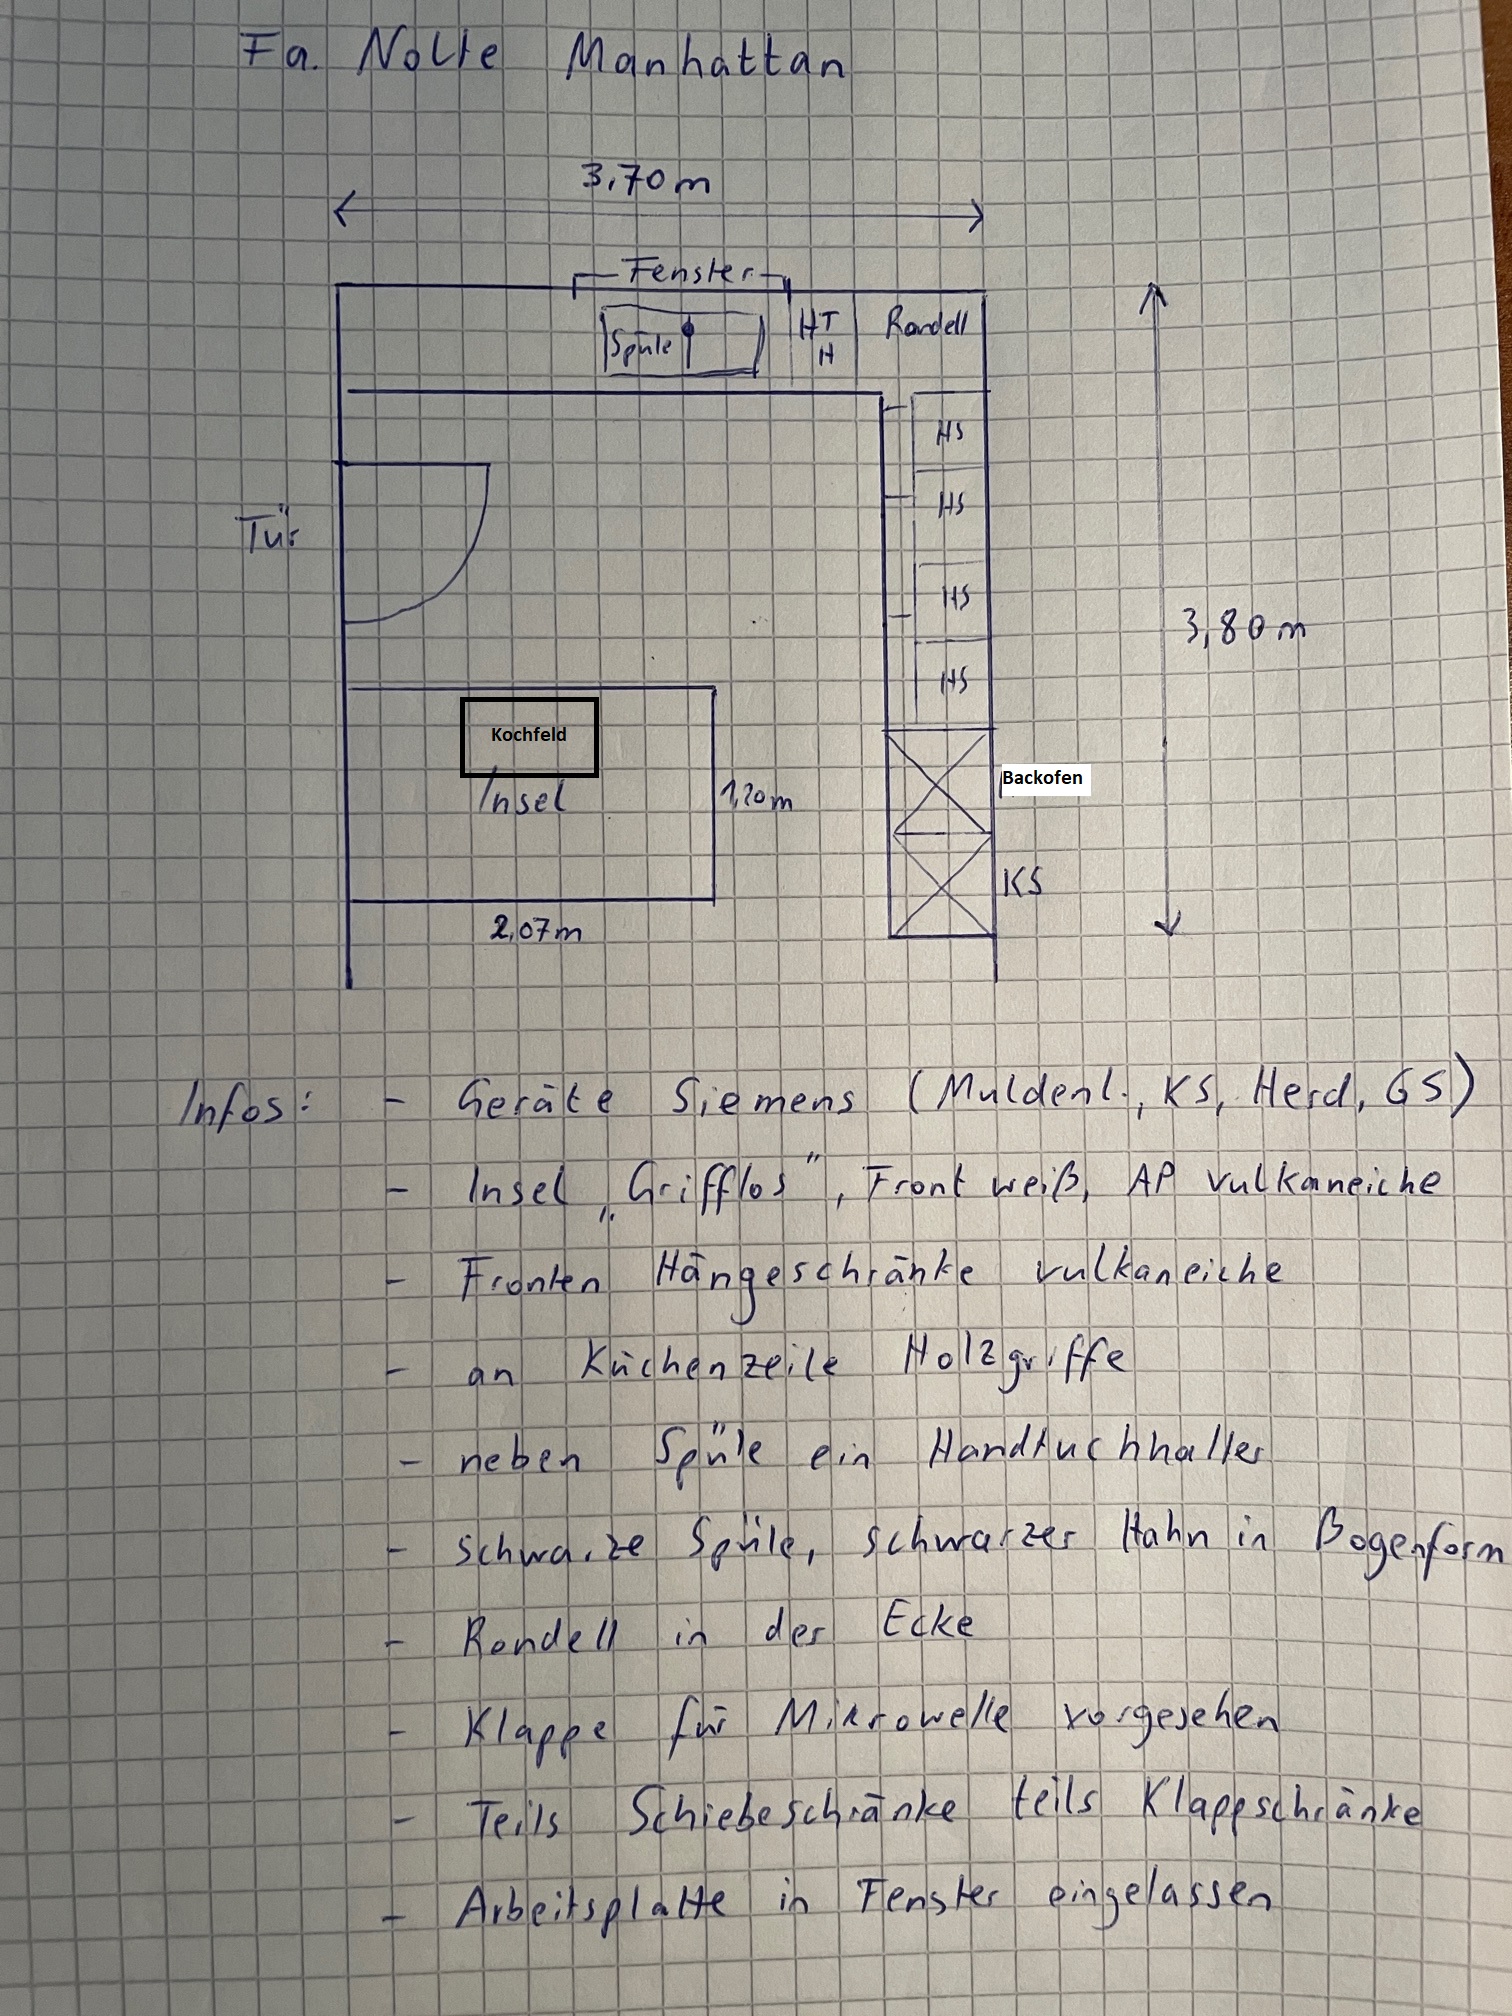 Fa. Nolte Manhattan
3,70 m
Fenster
Spüle
HT
H
Rondell
HS
HS
Tür
HS
3,80 m
HS
Kochfeld
Backofen
Insel
1,20 m
KS
2,07 m
Infos: - Geräte Siemens (Muldenl., KS, Herd, GS)
- Insel „Grifflos", Front weiß, AP vulkaneiche
- Fronten Hängeschränke vulkaneiche
- an Küchenzeile Holzgriffe
- neben Spüle ein Handtuchhalter
- schwarze Spüle, schwarzer Hahn in Bogenform
- Rondell in der Ecke
- Klappe für Mikrowelle vorgesehen
- Teils Schiebeschränke teils Klappschränke
- Arbeitsplatte in Fenster eingelassen